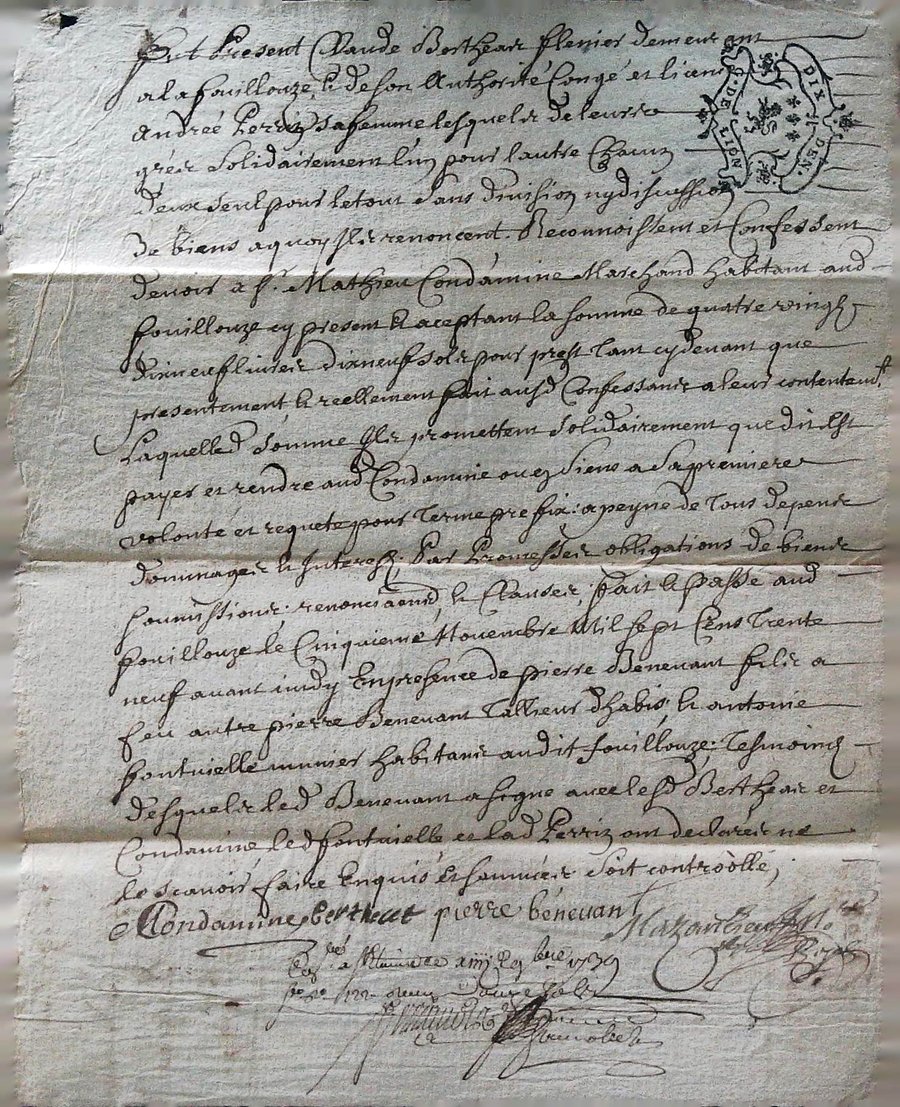 Fut Present Claude Bertheas flenier demeurant
a la fouillouze, & de son Authorité Congé et licence
Andrée Perrin sa femme lesquels de leurs
grés Solidairement l'un pour l'autre Chacun
deux seul pour le tout sans division ny discussion
de biens a quoy Ils renoncent. Reconnoissent et Confessent
devoir a sr. Mathieu Condamine Marchand habitant aud
fouillouze cy present & aceptant la somme de quatre vingt
dix neuf livres dix neuf sols pour prest Tant cy devant que
presentement & reellement fait ausd Confessants a leur contentemt
Laquelled Somme Ils promettent Solidairement que dit Est
payer et rendre aud Condamine ou es siens a Sa premiere
volonté et requete pour Terme prefix: a peyne de Tous depens
dommages & Interest, Par Promesses obligations de biens
soumissions, renonciaons, & Clauses, fait & Passé aud
fouillouze le Cinquieme Novembre Mil sept Cens Trente
neuf avant midy En presence de pierre Benevant fils a
feu autre pierre Benevant Tallieur dhabis, & antoine
fontvielle munier habitans audit fouillouze; Tesmoins
desquels led Benevant a signé avec lesd Bertheas et
Condamine led fontvielle et lad Perrin ont declarés ne
le scavoir faire Enquis et sommés Soit controollé,
Condamine bertheat pierre bénevant
G. DE LION
DIX DEN.
1739